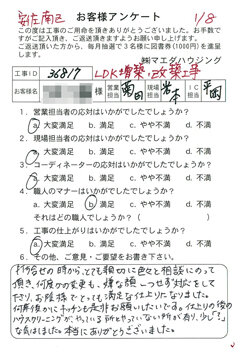 安佐南区 お客様アンケート 1/8
この度は工事のご用命を頂きありがとうございました。お手数で
すがご記入頂き、ご返送頂きますようお願い申し上げます。
ご返送頂いた方から、毎月抽選で3名様に図書券(1000円)を進呈
します。
㈱マエダハウジング
工事ID 36817 LDK増築・改築工事
お客様名 様 営業担当 現場担当 岩本 IC担当 平岡
1. 営業担当者の応対はいかがでしたでしょうか?
a. 大変満足 b. 満足 c. やや不満 d. 不満
2. 現場担当者の応対はいかがでしたでしょうか?
a. 大変満足 b. 満足 c. やや不満 d. 不満
3. コーディネーターの応対はいかがでしたでしょうか?
a. 大変満足 b. 満足 c. やや不満 d. 不満
4. 職人のマナーはいかがでしたでしょうか?
a. 大変満足 b. 満足 c. やや不満 d. 不満
それはどの職人でしょうか?( )
5. 工事の仕上がりはいかがでしたでしょうか?
a. 大変満足 b. 満足 c. やや不満 d. 不満
6. その他、ご意見・ご要望をお書き下さい。
打ち合せの時から、とても親切に色々と相談にのって
頂き、何度かの変更も、嫌な顔一つせず対応をして
下さり、お陰様でとっても満足な仕上りになりました。
何年後かにキッチンも是非お願いしたいです。仕上りの後の
ハウスクリーニングが、やっている所とやっていない所があり、少し?
な気はしました。本当にありがとうございました。